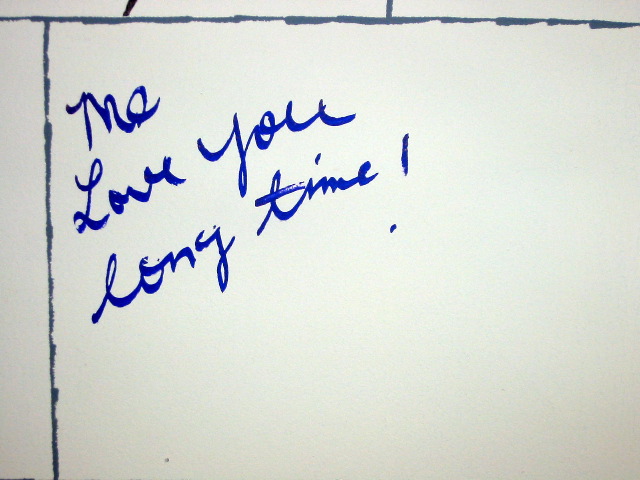 Me
Love you
long time!